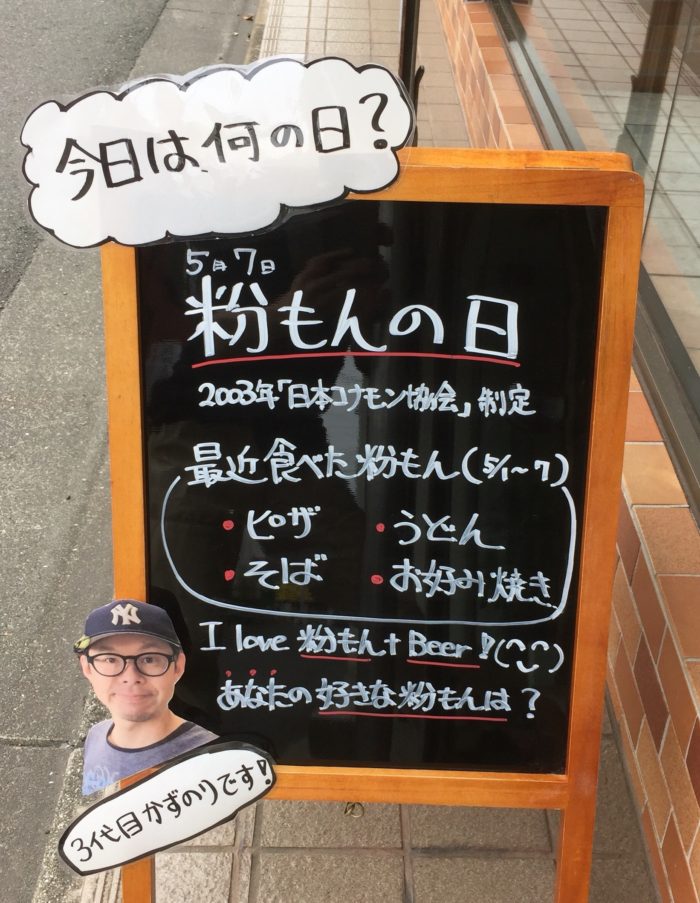 今日は何の日?
5月7日
粉もんの日
2003年「日本コナモン協会」制定
最近食べた粉もん(5/1~7)
・ピザ ・うどん
・そば ・お好み焼き
I love 粉もん+Beer!(^‿^)
あなたの好きな粉もんは?
NY
3代目かずのりです!